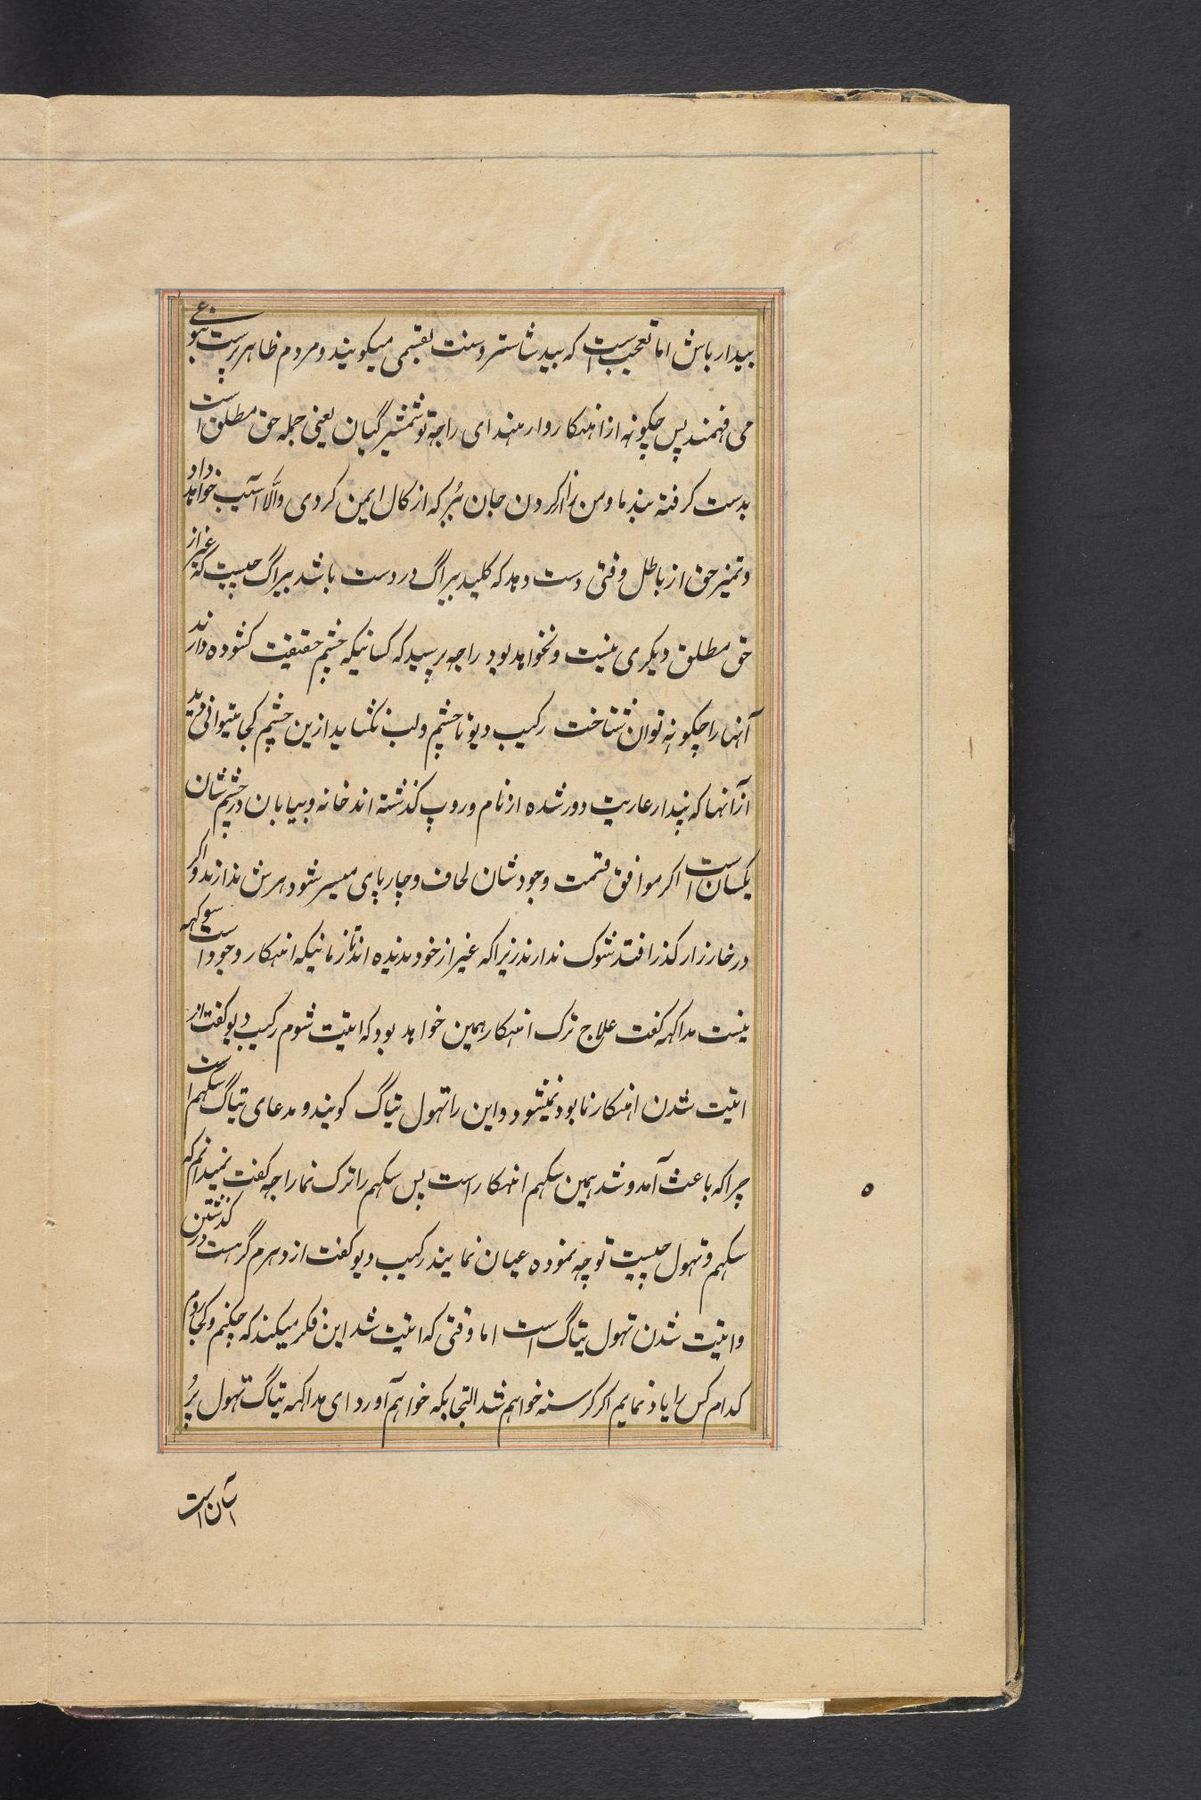 بیدار باش اما تعجب است که بید شاستر و سنت بقسمی میکویند و مردم ظاهر پرست بنوعی
می فهمند پس چکونه از اهنکار وارهند ای راجه تو شمشیر گیان یعنی جمله حق مطلق است
بدست کرفته بند ما و من را از کردن جان ببر که از کال ایمن کردی والا آسیب خواهد داد
و تمیز حق از باطل وقتی دست دهد که کلید بیراگ در دست باشد بیراگ چیست که غیر از
حق مطلق دیکری نیست و نخواهد بود راجه پرسید که کسانیکه چشم حقیقت کشوده دارند
آنها را چکونه توان شناخت رکیب دیو تا چشم و لب نکشاید ازین چشم کجا میتوانی دید
از آنها که پندار عاریت دور شده از نام و روپ کذشته اند خانه و بیابان در چشم شان
یکسان است اکر موافق قسمت وجودشان لحاف و چارپای میسر شود هرش ندارند و اکر
در خارزار کذر افتد شوک ندارند زیراکه غیر از خود ندیده اند تا زمانیکه اهنکار وجود است سوکهه
نیست مداکهه کفت علاج ترک اهنکار همین خواهد بود که اتیت شوم رکیب دیو کفت از
اتیت شدن اهنکار نابود نمیشود و این را تهول تیاگ کویند و مدعای تیاگ سکهم است
چراکه باعث آمد و شد همین سکهم اهنکار است پس سکهم را ترک نما راجه کفت نمیدانم که
سکهم و تهول چیست توجه نموده عیان نمایند رکیب دیو کفت از دهرم گرهست در کذشتن
و اتیت شدن تهول تیاگ است اما وقتی که اتیت شد این فکر میکند که چکنم و کجا روم
کدام کس را یاد نمایم اکر کرسنه خواهم شد التجا بکه خواهم آورد ای مداکهه تیاگ تهول پُر
آسان است